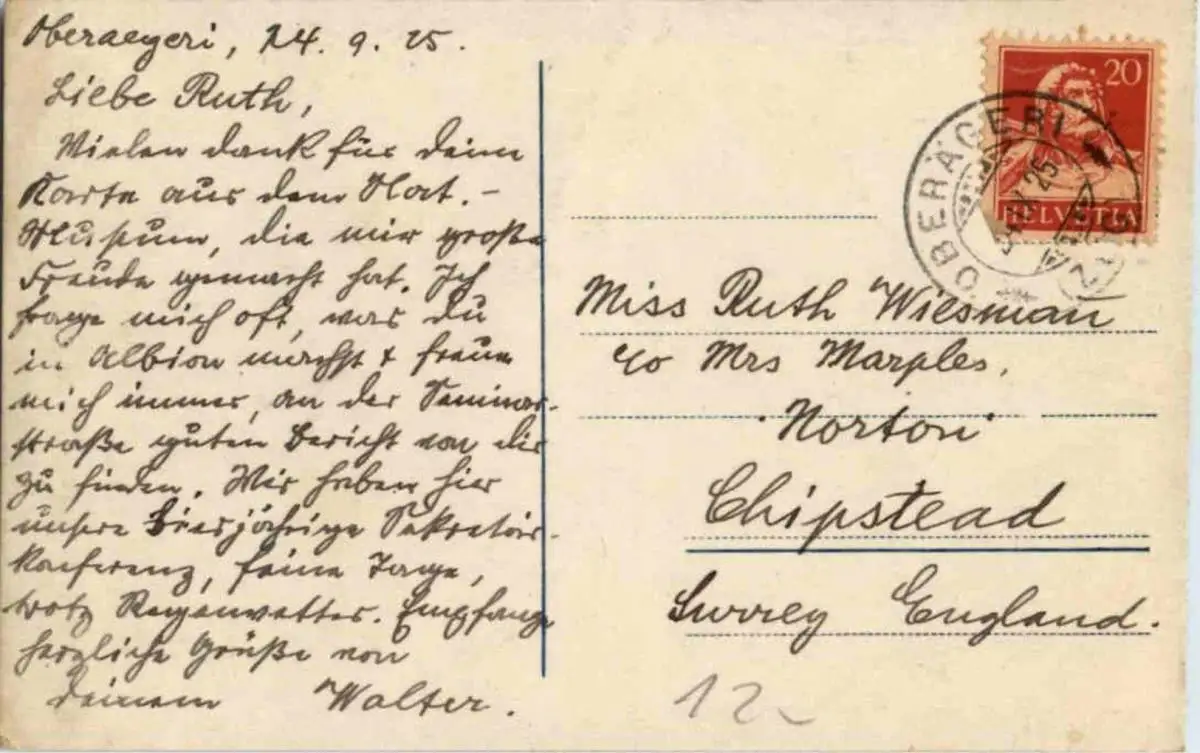 Oberaegeri, 24. 9. 25.
Liebe Ruth,
Vielen dank für deine
Karte aus dem Nat.-
Museum, die mir große
Freude gemacht hat. Ich
frage mich oft, was du
in Albion machst & freue
mich immer, an der Seminar-
straße guten Bericht von dir
zu finden. Wir haben hier
unsere diesjährige Sekretär-
Konferenz, feine Tage,
trotz Regenwetter. Empfange
herzliche Grüße von
deinem Walter.
20
HELVETIA
OBERÄGERI
25
Miss Ruth Wiesmann
c/o Mrs Marples.
Norton
Chipstead
Surrey England.
12